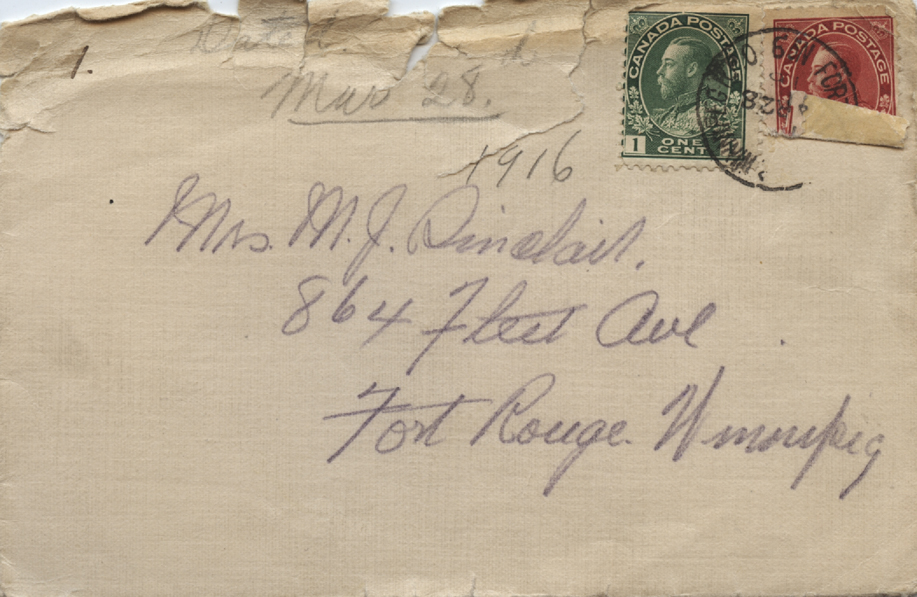 1.
Date
Mar 28.
1916
CANADA POSTAGE
1 ONE
CENT
CANADA POSTAGE
FORT
Mrs. M. J. Sinclair.
864 Fleet Ave
Fort Rouge. Winnipeg